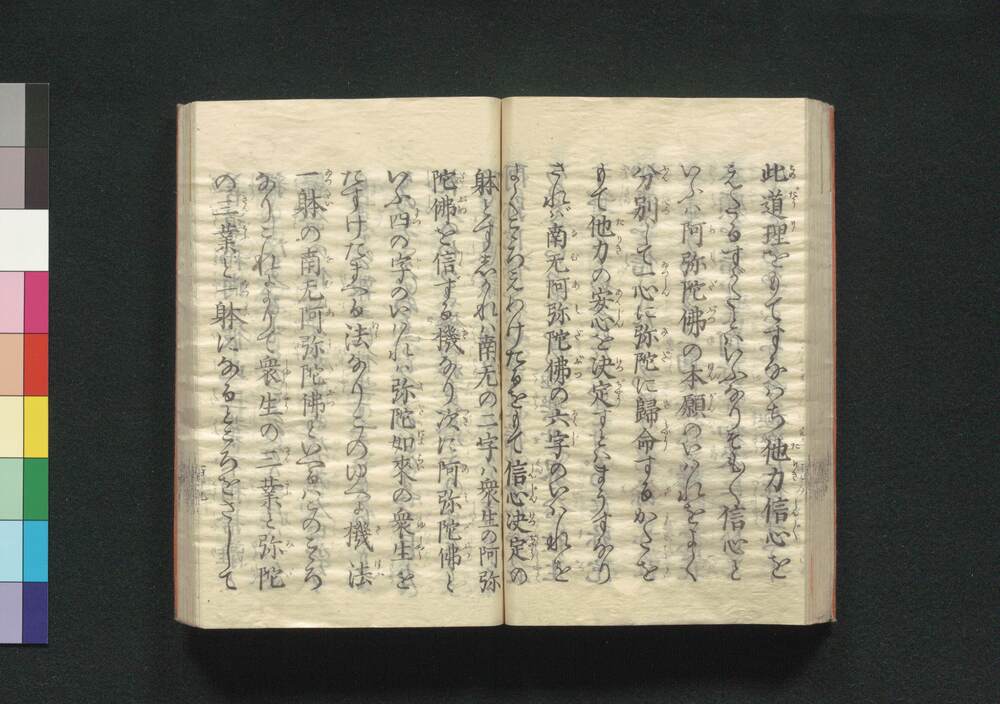 此道理をもてすなはち他力信心を
えたるすかたとはいふなりそも〱信心と
いふは阿弥陀佛の本願のいはれをよく
分別して一心に弥陀に歸命するかたを
もて他力の安心を決定すとはまうすなり
されは南无阿弥陀佛の六字のいはれを
よくこゝろえわけたるをもて信心决定の
躰とすしかれは南无の二字は衆生の阿弥
陀佛を信する機なり次に阿弥陀佛と
いふ四の字のいはれは弥陀如來の衆生を
たすけたまへる法なりこのゆへに機法
一躰の南无阿弥陀佛といへるはこのこゝろ
なりこれによりて衆生の三業と弥陀
の三業と一躰になるところをさして